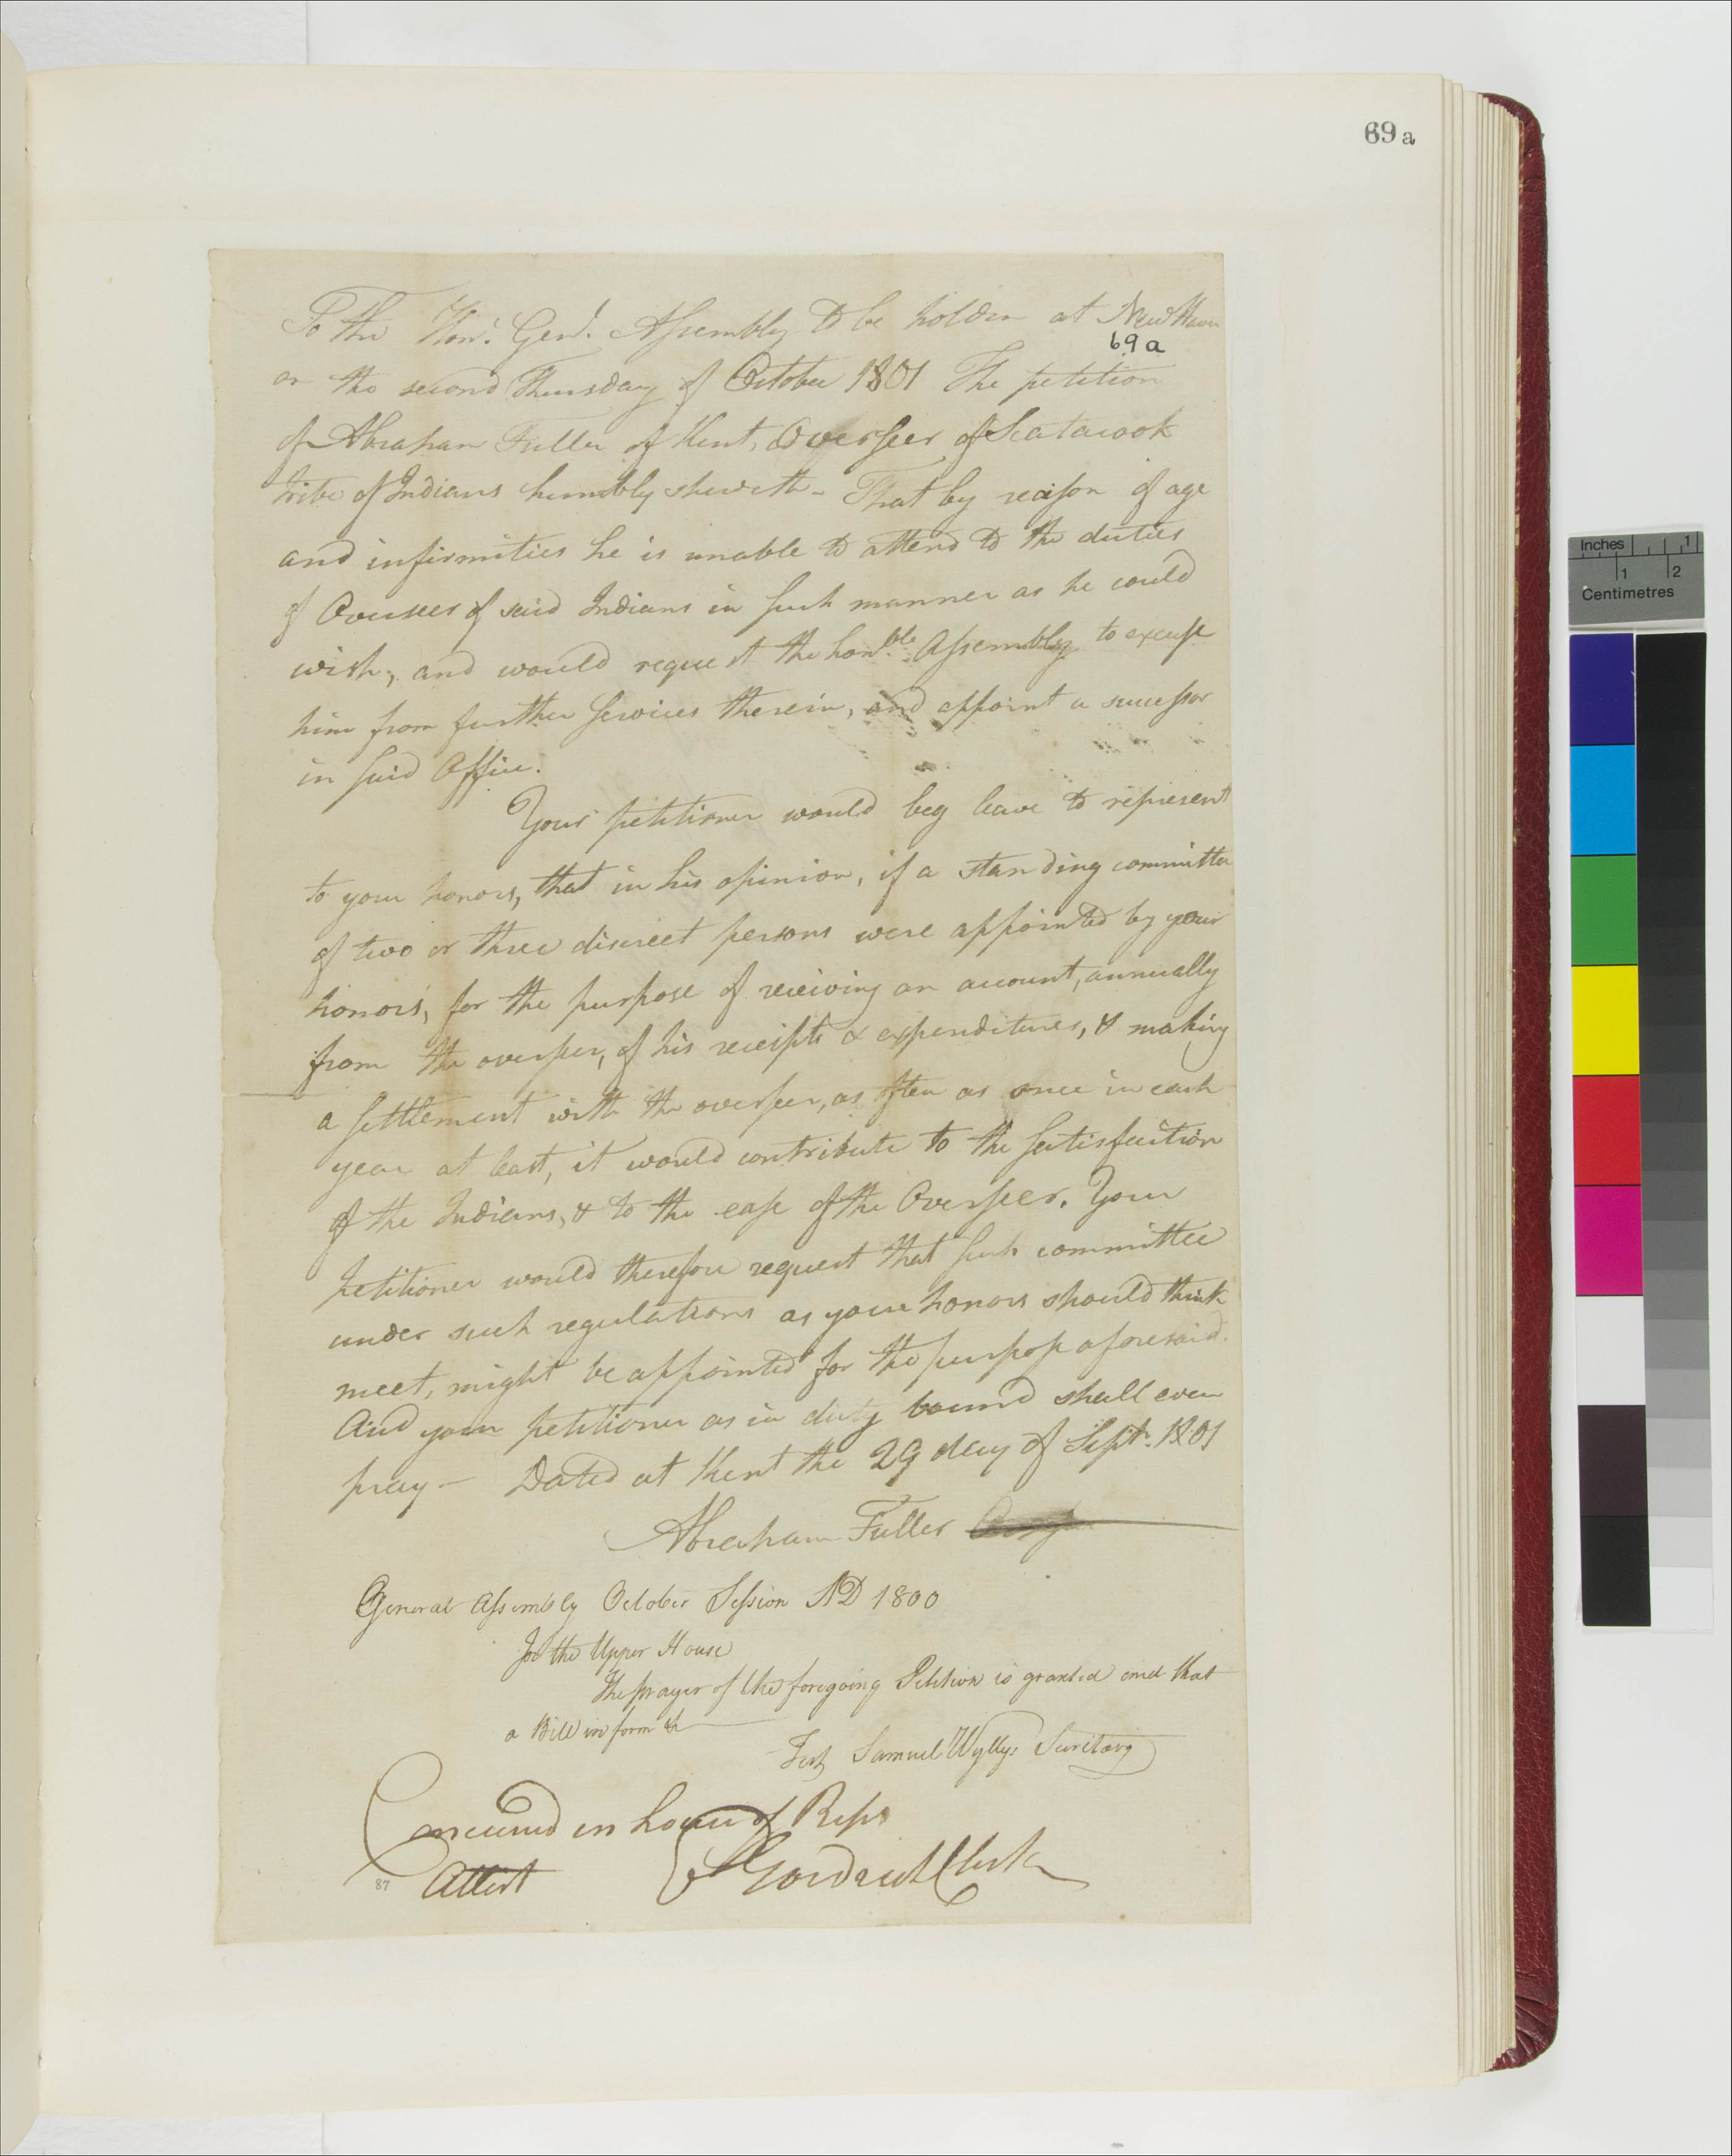 69a
To the Honl. Genl. Assembly to be holden at New Haven
69a
on the second Thursday of October 1801 The petition
of Abraham Fuller of Kent, Overseer of Scatacook
tribe of Indians humbly sheweth - That by reason of age
and infirmities he is unable to attend to the duties
of Overseer of said Indians in such manner as he could
wish, and would request the honble. Assembly to excuse
him from further services therein, and appoint a successor
in said Office.
Your petitioner would beg leave to represent
to your honors, that in his opinion, if a standing committee
of two or three discreet persons were appointed by your
honors, for the purpose of receiving an account, annually
from the overseer, of his receipts & expenditures, & making
a settlement with the overseer, as often as once in each
year at least, it would contribute to the satisfaction
of the Indians, & to the ease of the Overseer. Your
petitioner would therefore request that such committee
under such regulations as your honors should think
meet, might be appointed for the purpose aforesaid.
And your petitioner as in duty bound shall ever
pray - Dated at Kent the 29 day of Septr. 1801
Abraham Fuller
General Assembly October Session AD 1800
In the Upper House
The prayer of the foregoing Petition is granted and that
a Bill in form &c
Test Samuel Wyllys Secretary
Concurred in house of Reps
87 Attest Goodrich Clerk
Inches 1
1 2
Centimetres